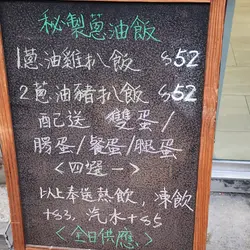 秘製蔥油飯
1蔥油雞扒飯 $52
2蔥油豬扒飯 $52
配送 雙蛋/
腸蛋/餐蛋/腿蛋
<四選一>
以上奉送熱飲,凍飲
+$3,汽水+$5
<全日供應>